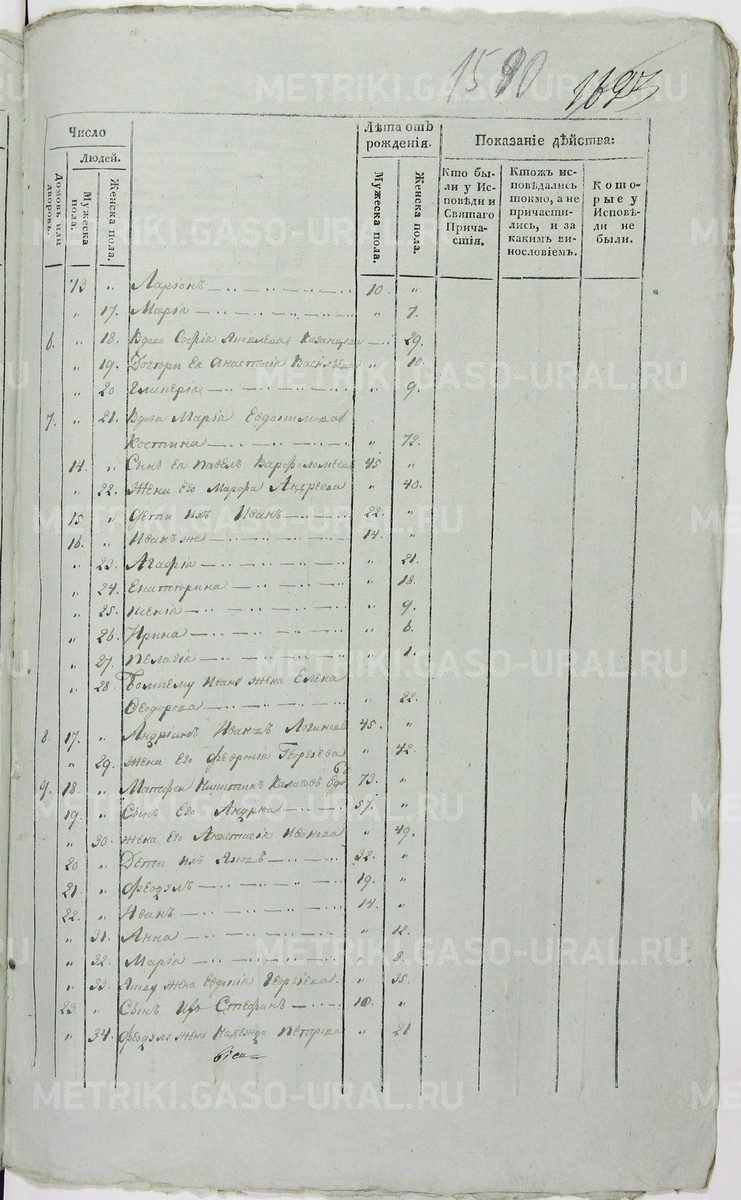 1590
Число
Людей.
Домовъ или дворовъ.
Мужеска пола.
Женска пола.
Лѣта отъ рожденія.
Мужеска пола.
Женска пола.
Показаніе дѣйства:
Кто были у Исповѣди и Святаго Причастія.
Ктожъ исповѣдались токмо, а не причастились, и за какимъ винословіемъ.
Которые у Исповѣди не были.
13 „ Ларіонъ 10. „
„ 17. Марія „ 7.
6. „ 18. Вдова Софія Яковлева Казанцева 29.
„ 19. Дочери ея Анастасія Васильева „ 10.
„ 20 Гликерія „ 9.
7. „ 21. Вдова Марія Евдокимова
Костина „ 72.
14. „ Сынъ ея Павелъ Варфоломеевъ 45 „
„ 22. Жена его Марфа Андреева „ 40.
15 „ Дети ихъ Иванъ 22. „
16. „ Иванъ же 14. „
„ 23. Агафія „ 21.
„ 24. Екатерина „ 18.
„ 25. Ксенія „ 9.
„ 26. Ирина „ 6.
„ 27. Пелагія „ 1.
„ 28. Большему Ивану жена Елена
Феодорова „ 22.
8. 17. „ Андріанъ Ивановъ Логиновъ 45. „
„ 29. Жена его Феврония Георгіева „ 42.
9. 18. „ Матфей Никитинъ Калаговъ вдовъ 73. „
19. „ Сынъ его Андрей 57. „
„ 30. Жена его Анастасія Иванова „ 49.
20 „ Дети ихъ Яковъ 32. „
21. „ Феодулъ 19. „
22. „ Иванъ 14. „
„ 31. Анна „ 12.
„ 32. Марія „ 2.
„ 33. Якову жена Евгенія Георгіева „ 35.
23 „ Сынъ ихъ Стефанъ 10. „
„ 34. Феодула жена Надежда Петрова „ 21
METRIKI.GASO-URAL.RU